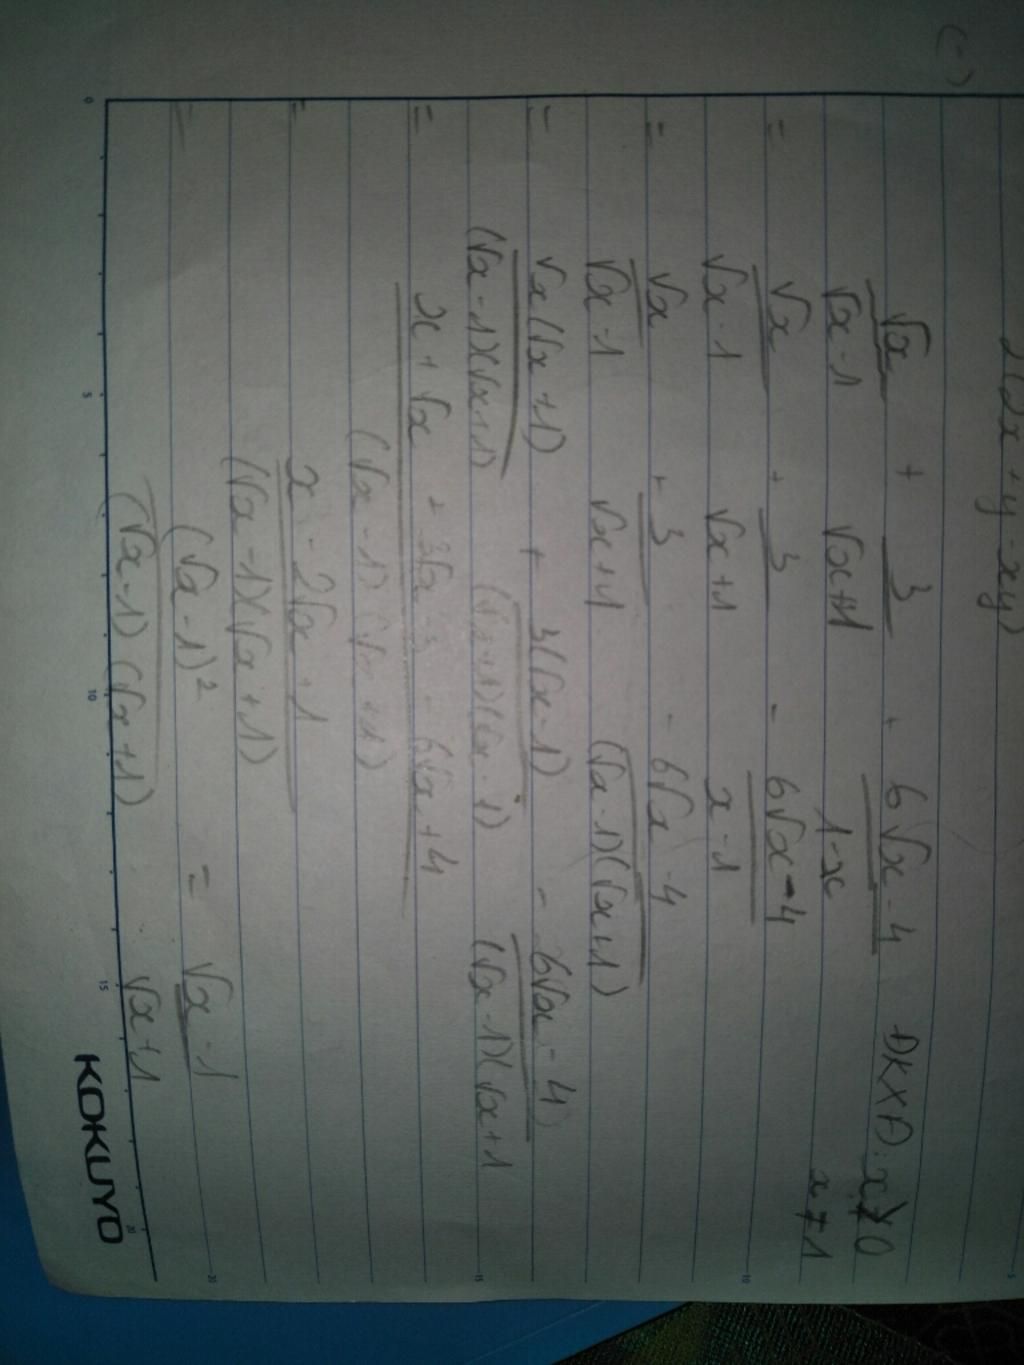 2(2x+y-xy)
(-) √x/(√x-1) + 3/(√x+1) + (6√x-4)/(1-x) ĐKXĐ: x≥0
x≠1
= √x/(√x-1) + 3/(√x+1) - (6√x-4)/(x-1)
= √x/(√x-1) + 3/(√x+1) - (6√x-4)/((√x-1)(√x+1))
= √x(√x+1)/((√x-1)(√x+1)) + 3(√x-1)/((√x+1)(√x-1)) - (6√x-4)/((√x-1)(√x+1
= (x+√x+3√x-3-6√x+4)/((√x-1)(√x+1))
= (x-2√x+1)/((√x-1)(√x+1))
= (√x-1)²/((√x-1)(√x+1)) = (√x-1)/(√x+1)
0 5 10 15 20
KOKUYO